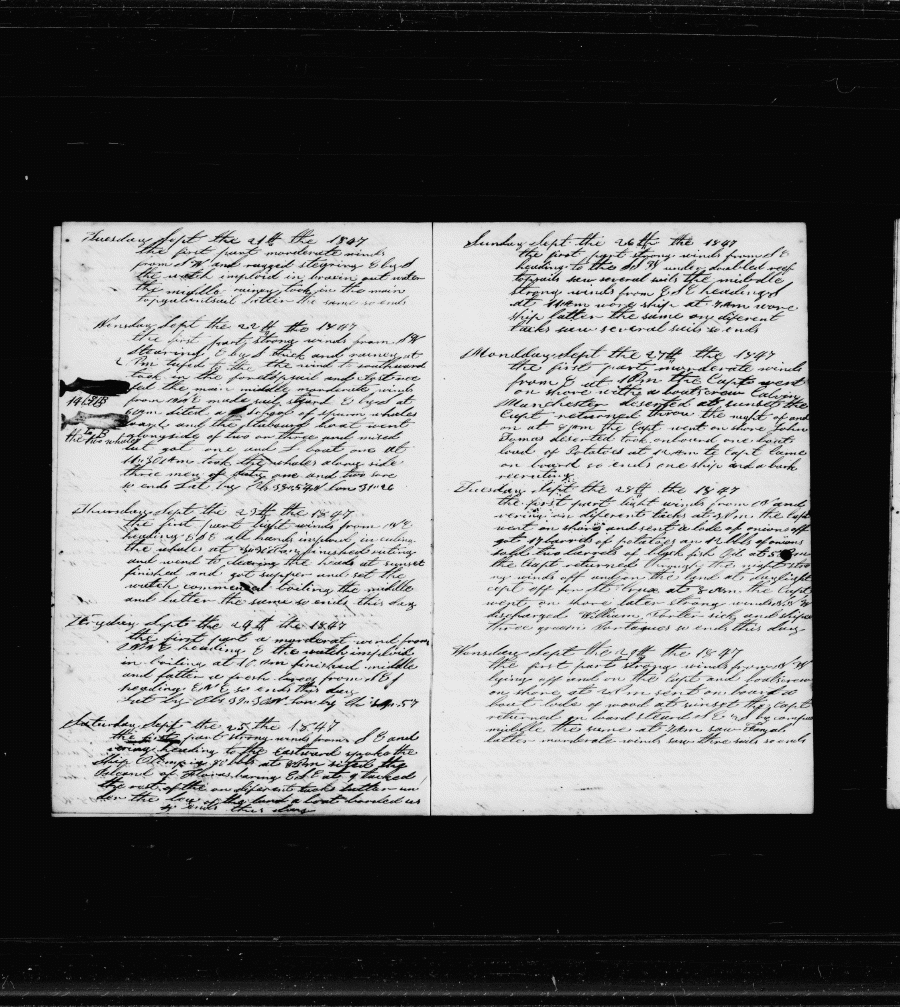 Tuesday Sept the 21th the 1847
the first part morderate winds
from and ragged stegring E by S
the watch imployd in
the middle rainey took in the main
topgalantsail latter the same so ends
Wensday Sept the 22th the 1847
the first part strong winds from SW
Stearing E by S thick and rainey at
the wind to southward
took in the foretopsail and
the main middle morderate winds
from made sail stgard E by S at
school of spurm whales
and the starboard boat went
alongside of two or three and mised
but got one and L boat one at
took the whales along side
three men of duty one and two sore
so ends Lat by Ob lon 31=26
the two whales
Thursday Sept the 23th the 1847
the first part light winds from NE
heading ESE all hands imployd in cuting
the whales at finished cuting
and went to clearing the heads at sunset
finished and got supper and set the
watch commenced boiling the middle
and latter the same so ends this day
Fryday Septs the 24th the 1847
the first part a morderat wind from
heading E the watch imployd
in boiling at 10 Am finished middle
and latter a fresh breeze from
heading ENE so ends this day
Lat by Obs lon by th
Saturday Sept the 25 the 1847
the first part strong winds from SE and
heading to the Eastward spoke the
Ship at sited the
Isleand of Floras baring ESE at 9 tacked
the rest of the on diferent tacks latter un
der the Lee of the land a boat borded us
so ends this day
Sunday Sept the 26th the 1847
the first part strong winds from SE
heading to the SW under doubled reef
topsails saw several sails the middle
strong winds from ESE heading S
at wore ship at 7 Am wore
ship latter the same on diferent
tacks saw several sails so ends
Mondday Sept the 27th the 1847
the first part morderate winds
from E at 1 Pm the Capt went
on shore with a boatscrew Calvin
Manchester deserted at sunset the
Capt returned throu the night of and
on at 8 Am the Capt went on shore John
Jamas deserted took onbourd one boats
load of Potatoes at 12 Am te Capt came
on board so ends one ship and a bark
recruiting
Tuesday Sept the 28th the 1847
the first part light winds from W and
vering on diferent tacks at 1 Pm the Capt
went on shore and sent a lode of onions off
got 17 barels of potatoes an 12 bbls of onions
two barrels of black fish Oil at 5 Pm
the Capt returned through the night stro
ng winds off and on the land at daylight
off for St Cruz at 8 Am the Capt
went on shore later strong winds
discharged William Porter sick and shiped
three green Portogues so ends this day
Wensday Sept the 29th the 1847
the first part strong winds from NW
lying off and on the Capt and boatscrew
on shore at 2 Pm sent on board a
boat lode of wood at sunset the Capt
returned on bord steard SE by compass
middle the same at 7 Am saw
latter morderate winds saw three sails so ends